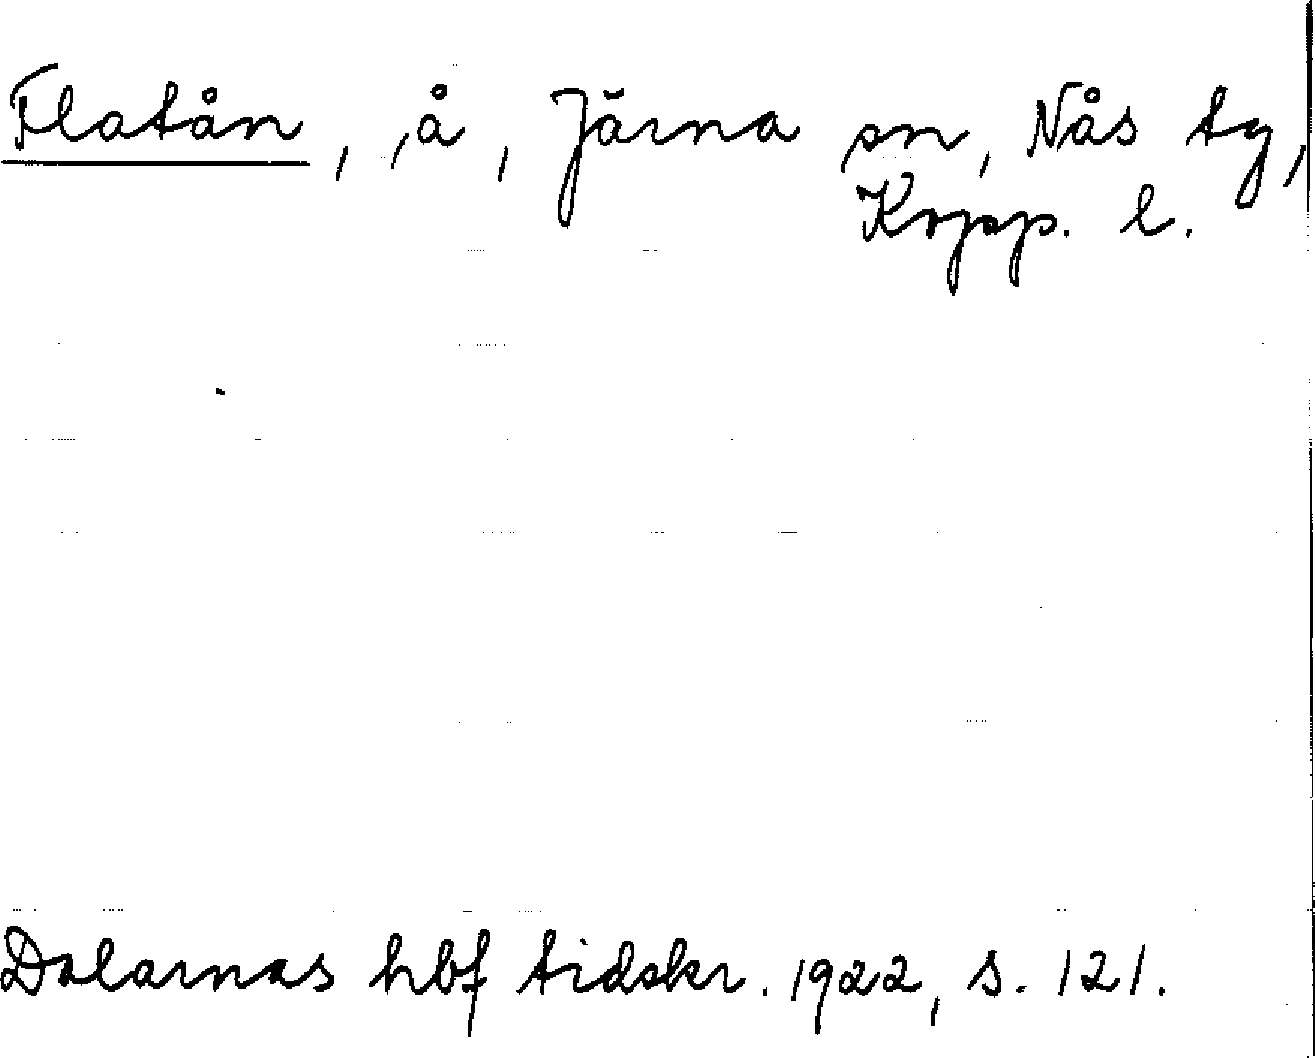 Flatån, å, Järna sn, Nås tg,
Kopp. l.
Dalarnas hbf tidskr. 1922, s. 121.